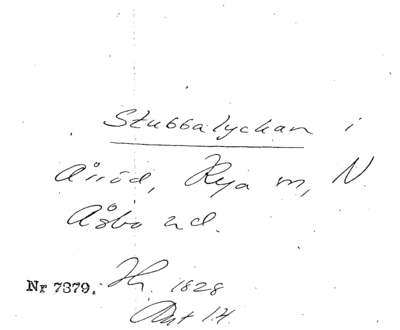 Stubbalyckan i
Årröd, Rya sn, N.
Åsbo hd.
Nr 7379. Hr. 1828
Akt 14